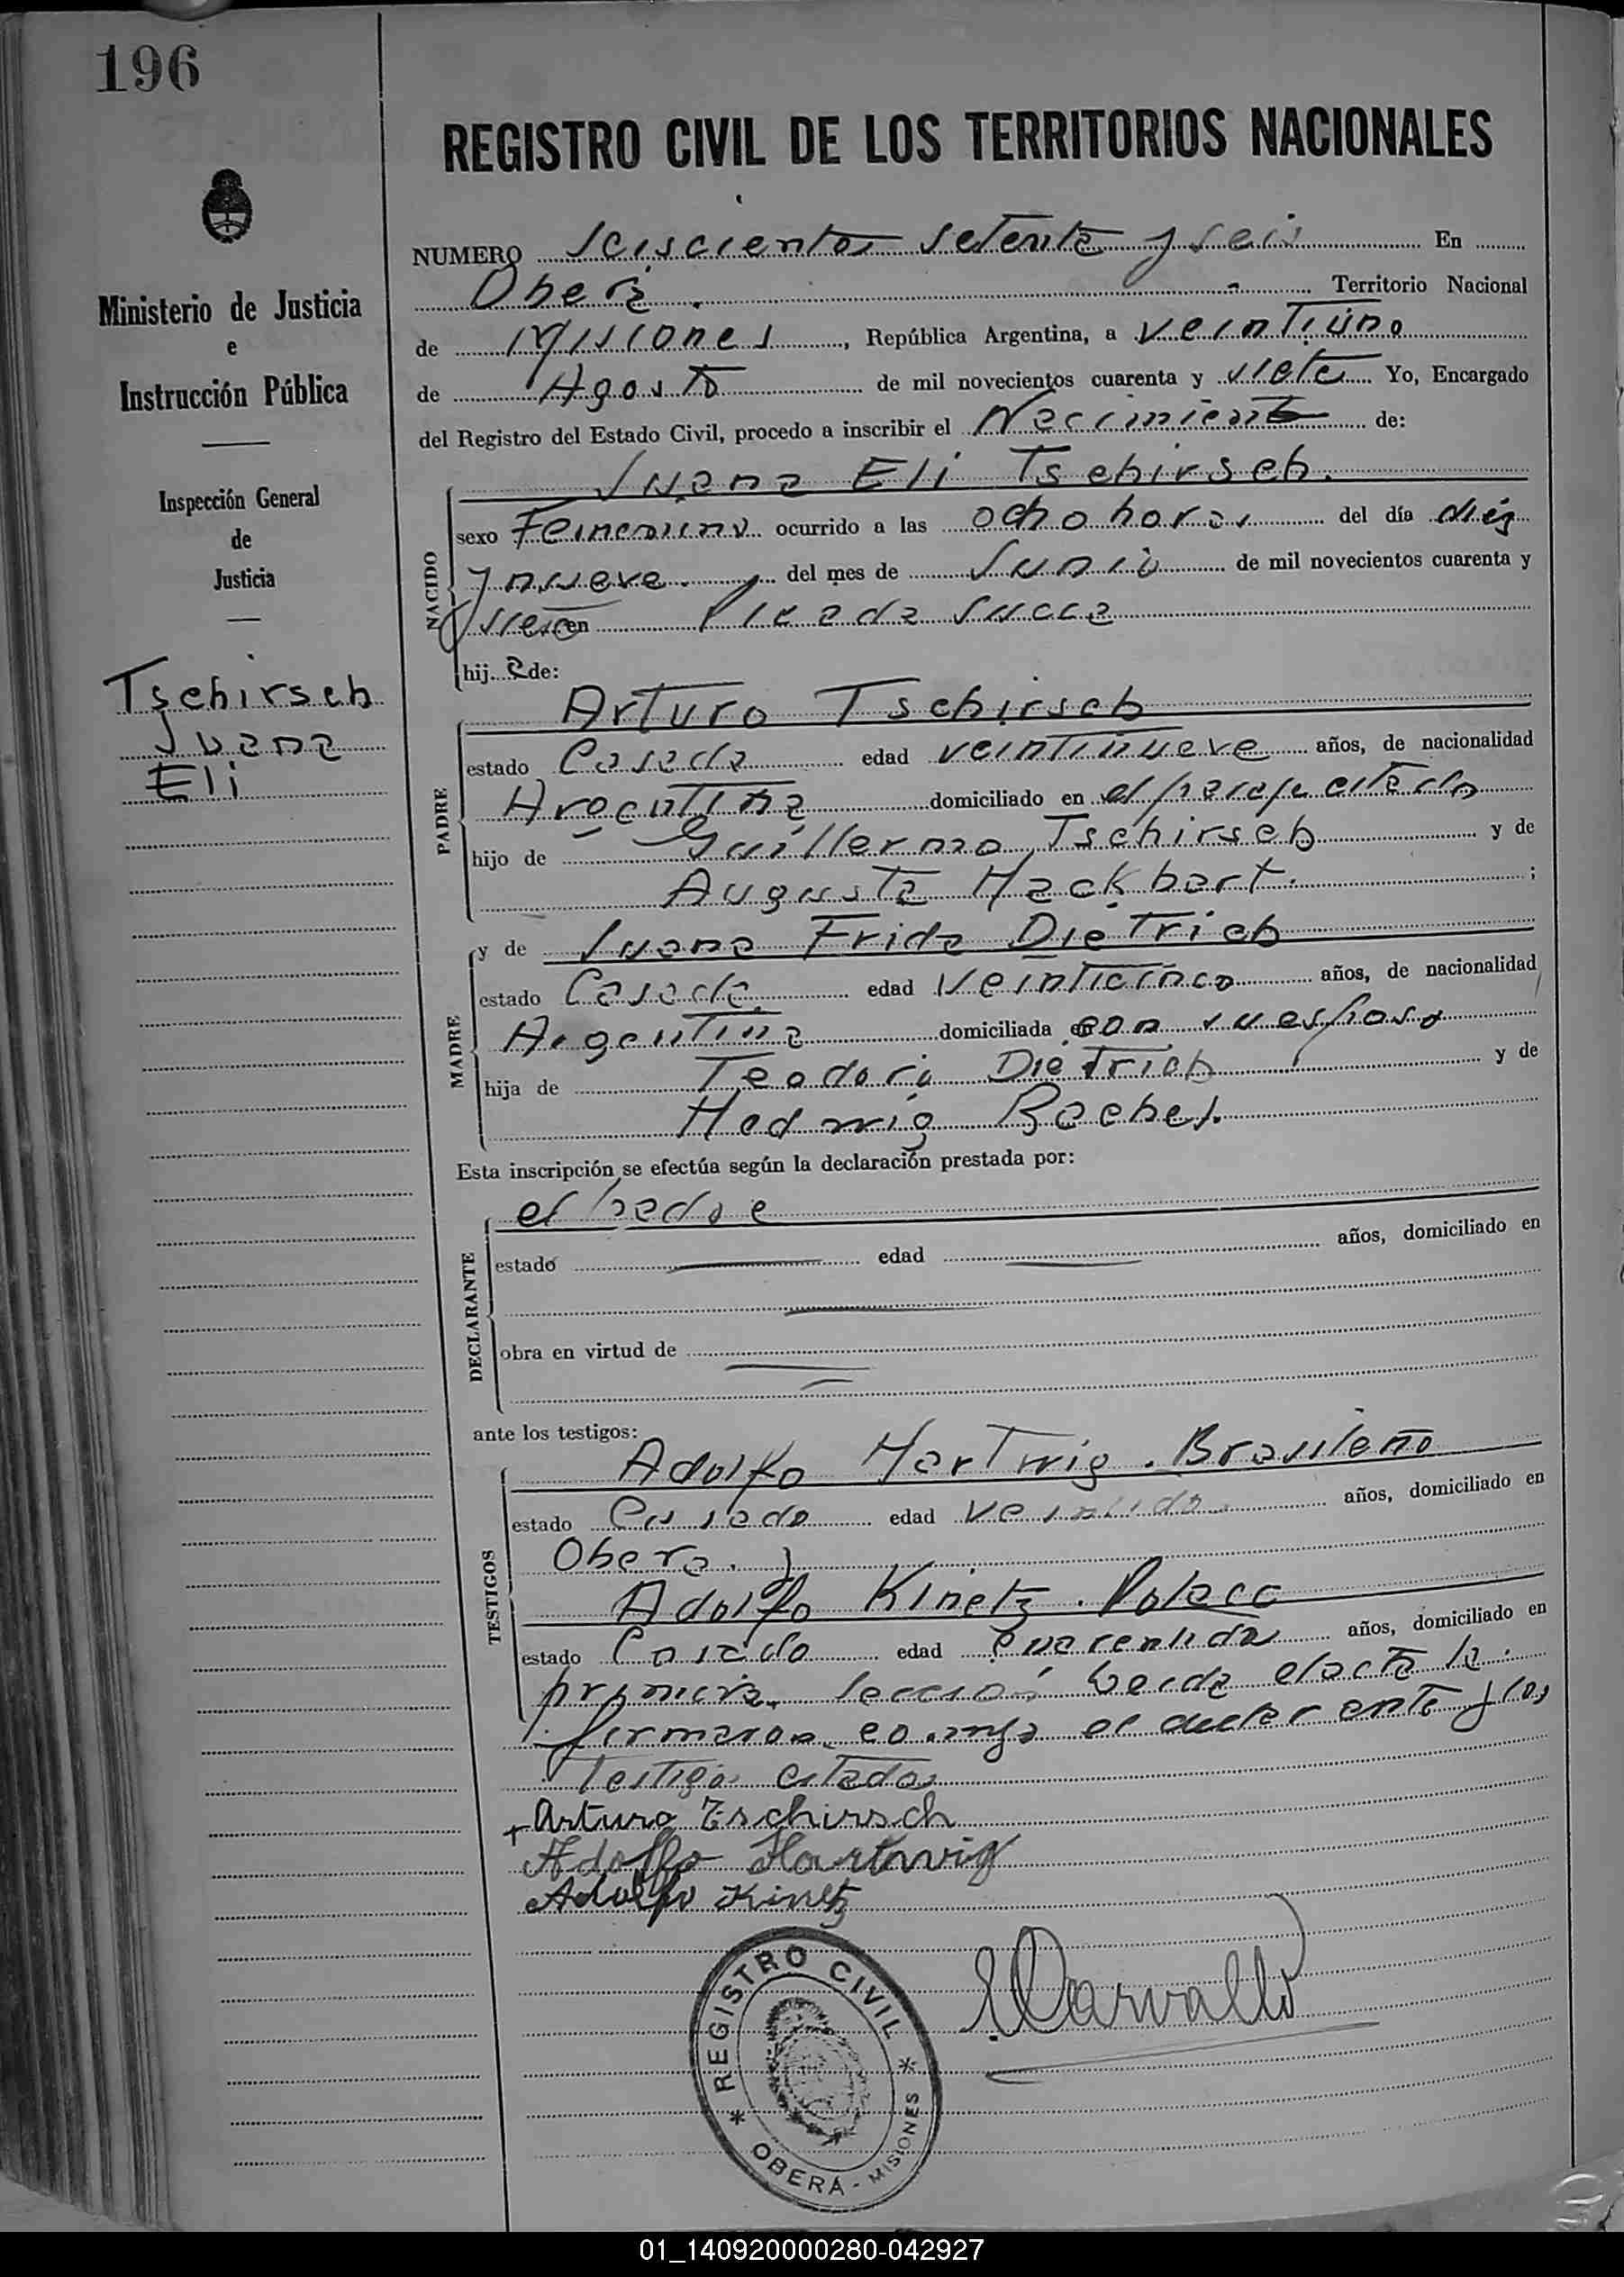 196
REGISTRO CIVIL DE LOS TERRITORIOS NACIONALES
Ministerio de Justicia
e
Instrucción Pública
Inspección General
de
Justicia
Tschirsch
Juana
Eli
NUMERO Seiscientos setenta y seis En
Oberá. Territorio Nacional
de Misiones, República Argentina, a veintiúno
de Agosto de mil novecientos cuarenta y siete Yo, Encargado
del Registro del Estado Civil, procedo a inscribir el Nacimiento de:
NACIDO
Juana Eli Tschirsch.
sexo Femenino ocurrido a las ocho horas del día diez
y nueve. del mes de Junio de mil novecientos cuarenta y
siete en Picada Sueca
hij a de:
PADRE
Arturo Tschirsch
estado Casado edad veintinueve años, de nacionalidad
Argentina domiciliado en el paraje citado
hijo de Guillermo Tschirsch y de
Augusta Hackbart. ;
MADRE
y de Juana Frida Dietrich
estado Casada edad Veinticinco años, de nacionalidad
Argentina domiciliada con su esposo
hija de Teodoro Dietrich y de
Hedwig
Esta inscripción se efectúa según la declaración prestada por:
DECLARANTE
el padre
estado edad años, domiciliado en
obra en virtud de
ante los testigos:
TESTIGOS
Adolfo Hartwig. Brasileño
estado Casado edad veintidos años, domiciliado en
Oberá. y
Adolfo Kinetz. Polaco
estado Casado edad cuarentidos años, domiciliado en
primera sección Leida el acta la
firmaron conmigo el declarante y los
testigos citados
+ Arturo Tschirsch
Adolfo Hartwig
Adolfo Kinetz
REGISTRO CIVIL
* OBERÁ - MISIONES *
01_140920000280-042927